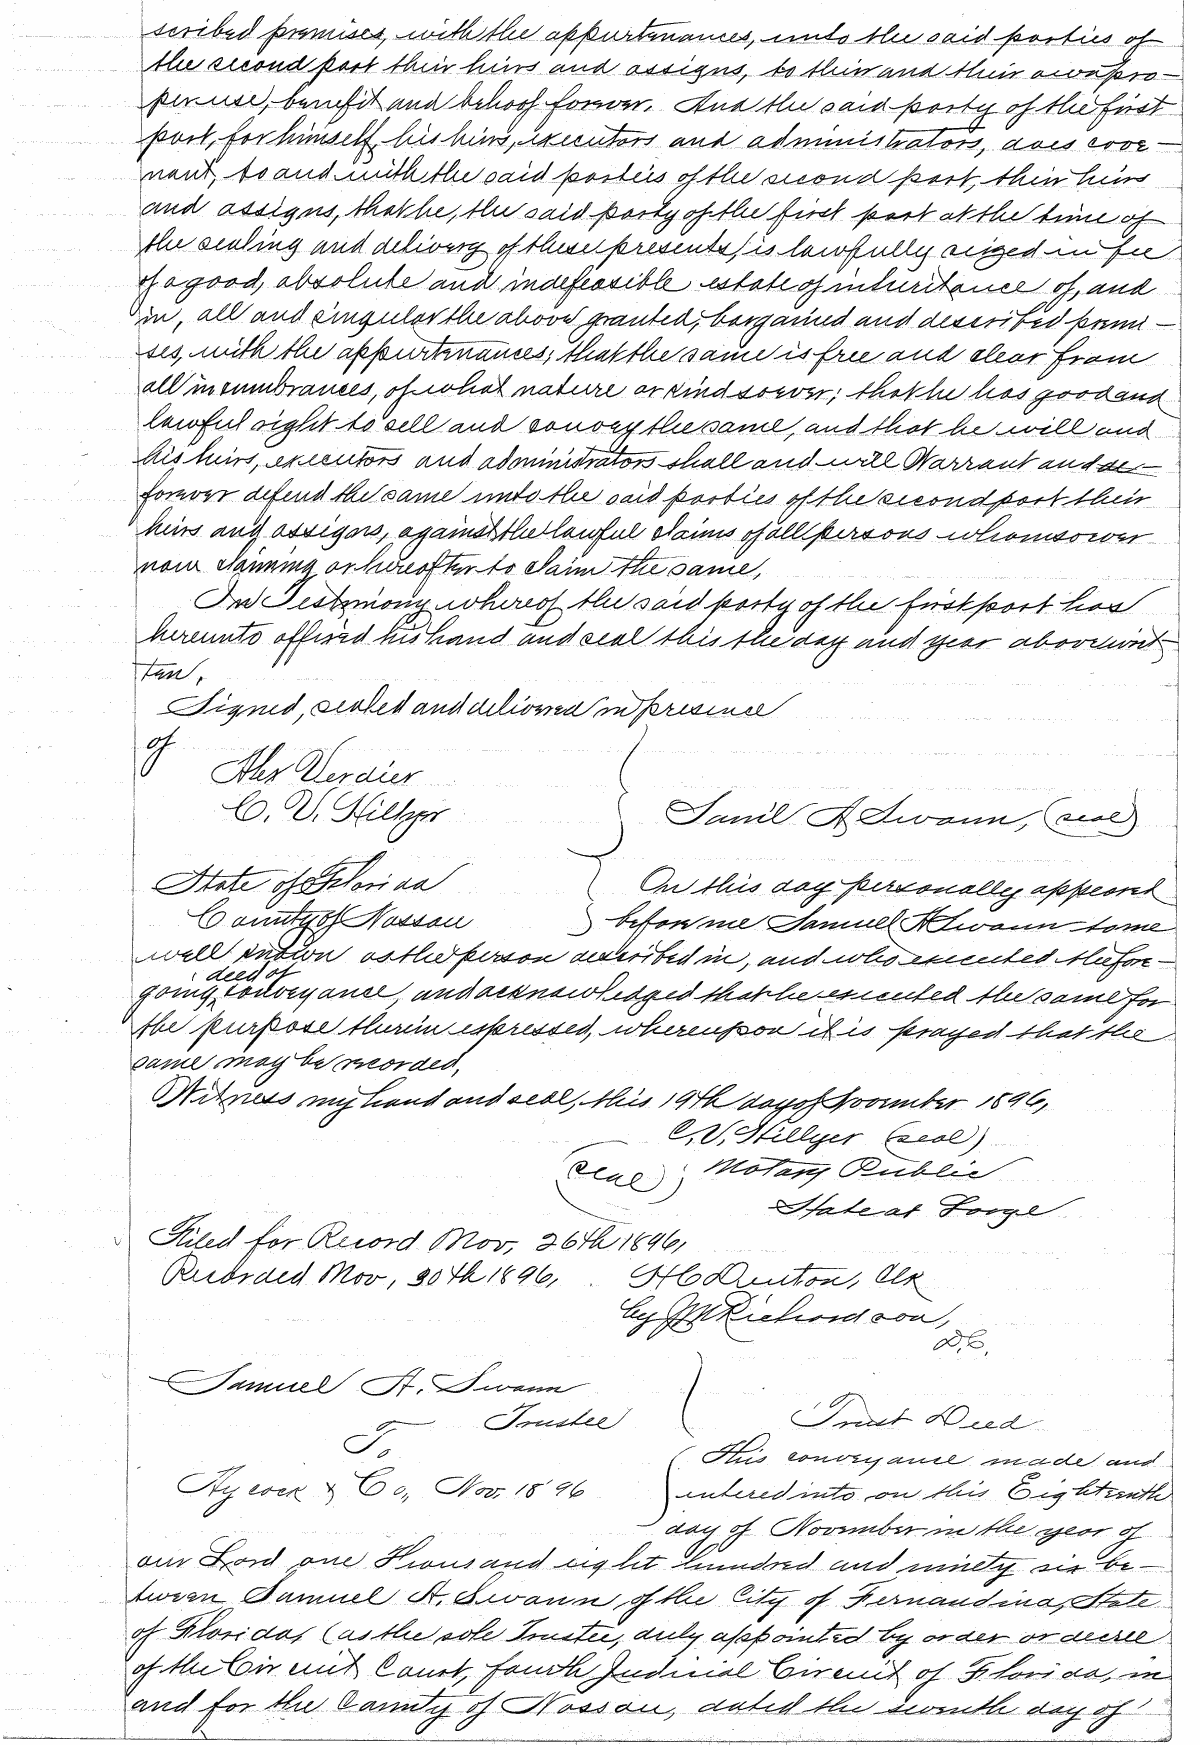 scribed premises, with the appurtenances, unto the said parties of
the second part their heirs and assigns, to their and their own pro-
per use, benefit and behoof forever. And the said party of the first
part, for himself, his heirs, executors and administrators, does cove-
nant, to and with the said parties of the second part, their heirs
and assigns, that he, the said party of the first part at the time of
the sealing and delivery of these presents, is lawfully seized in fee
of a good, absolute and indefeasible estate of inheritance of, and
in, all and singular the above granted, bargained and described premi-
ses, with the appurtenances; that the same is free and clear from
all incumbrances, of what nature or kind soever; that he has good and
lawful right to sell and convey the same, and that he will and
his heirs, executors and administrators shall and will Warrant and de-
forever defend the same unto the said parties of the second part their
heirs and assigns, against the lawful claims of all persons whomsoever
now claiming or hereafter to claim the same.
In Testimony whereof the said party of the first part has
hereunto affixed his hand and seal this the day and year above writ-
ten.
Signed, sealed and delivered in presence
of
Alex Verdier
C. V. Hillyer
Saml A Swann, (seal)
State of Florida
County of Nassau
On this day personally appeared
before me Samuel A Swann to me
well known as the person described in, and who executed the fore-
going deed of conveyance, and acknowledged that he executed the same for
the purpose therein expressed, whereupon it is prayed that the
same may be recorded.
Witness my hand and seal, this 19th day of November 1896,
C. V. Hillyer (seal)
(seal) Notary Public
State at Large
Filed for Record Nov. 26th 1896,
Recorded Nov, 30th 1896, H C Dunton, Clk
by J M Richardson,
D.C.
Samuel A. Swann
Trustee
To
Aycock & Co., Nov. 1896
Trust Deed
This conveyance made and
entered into on this Eighteenth
day of November in the year of
our Lord one Thousand eight hundred and ninety six be-
tween Samuel A. Swann of the City of Fernandina, State
of Florida, (as the sole Trustee, duly appointed by order or decree
of the Circuit Court, fourth Judicial Circuit of Florida, in
and for the County of Nassau, dated the seventh day of